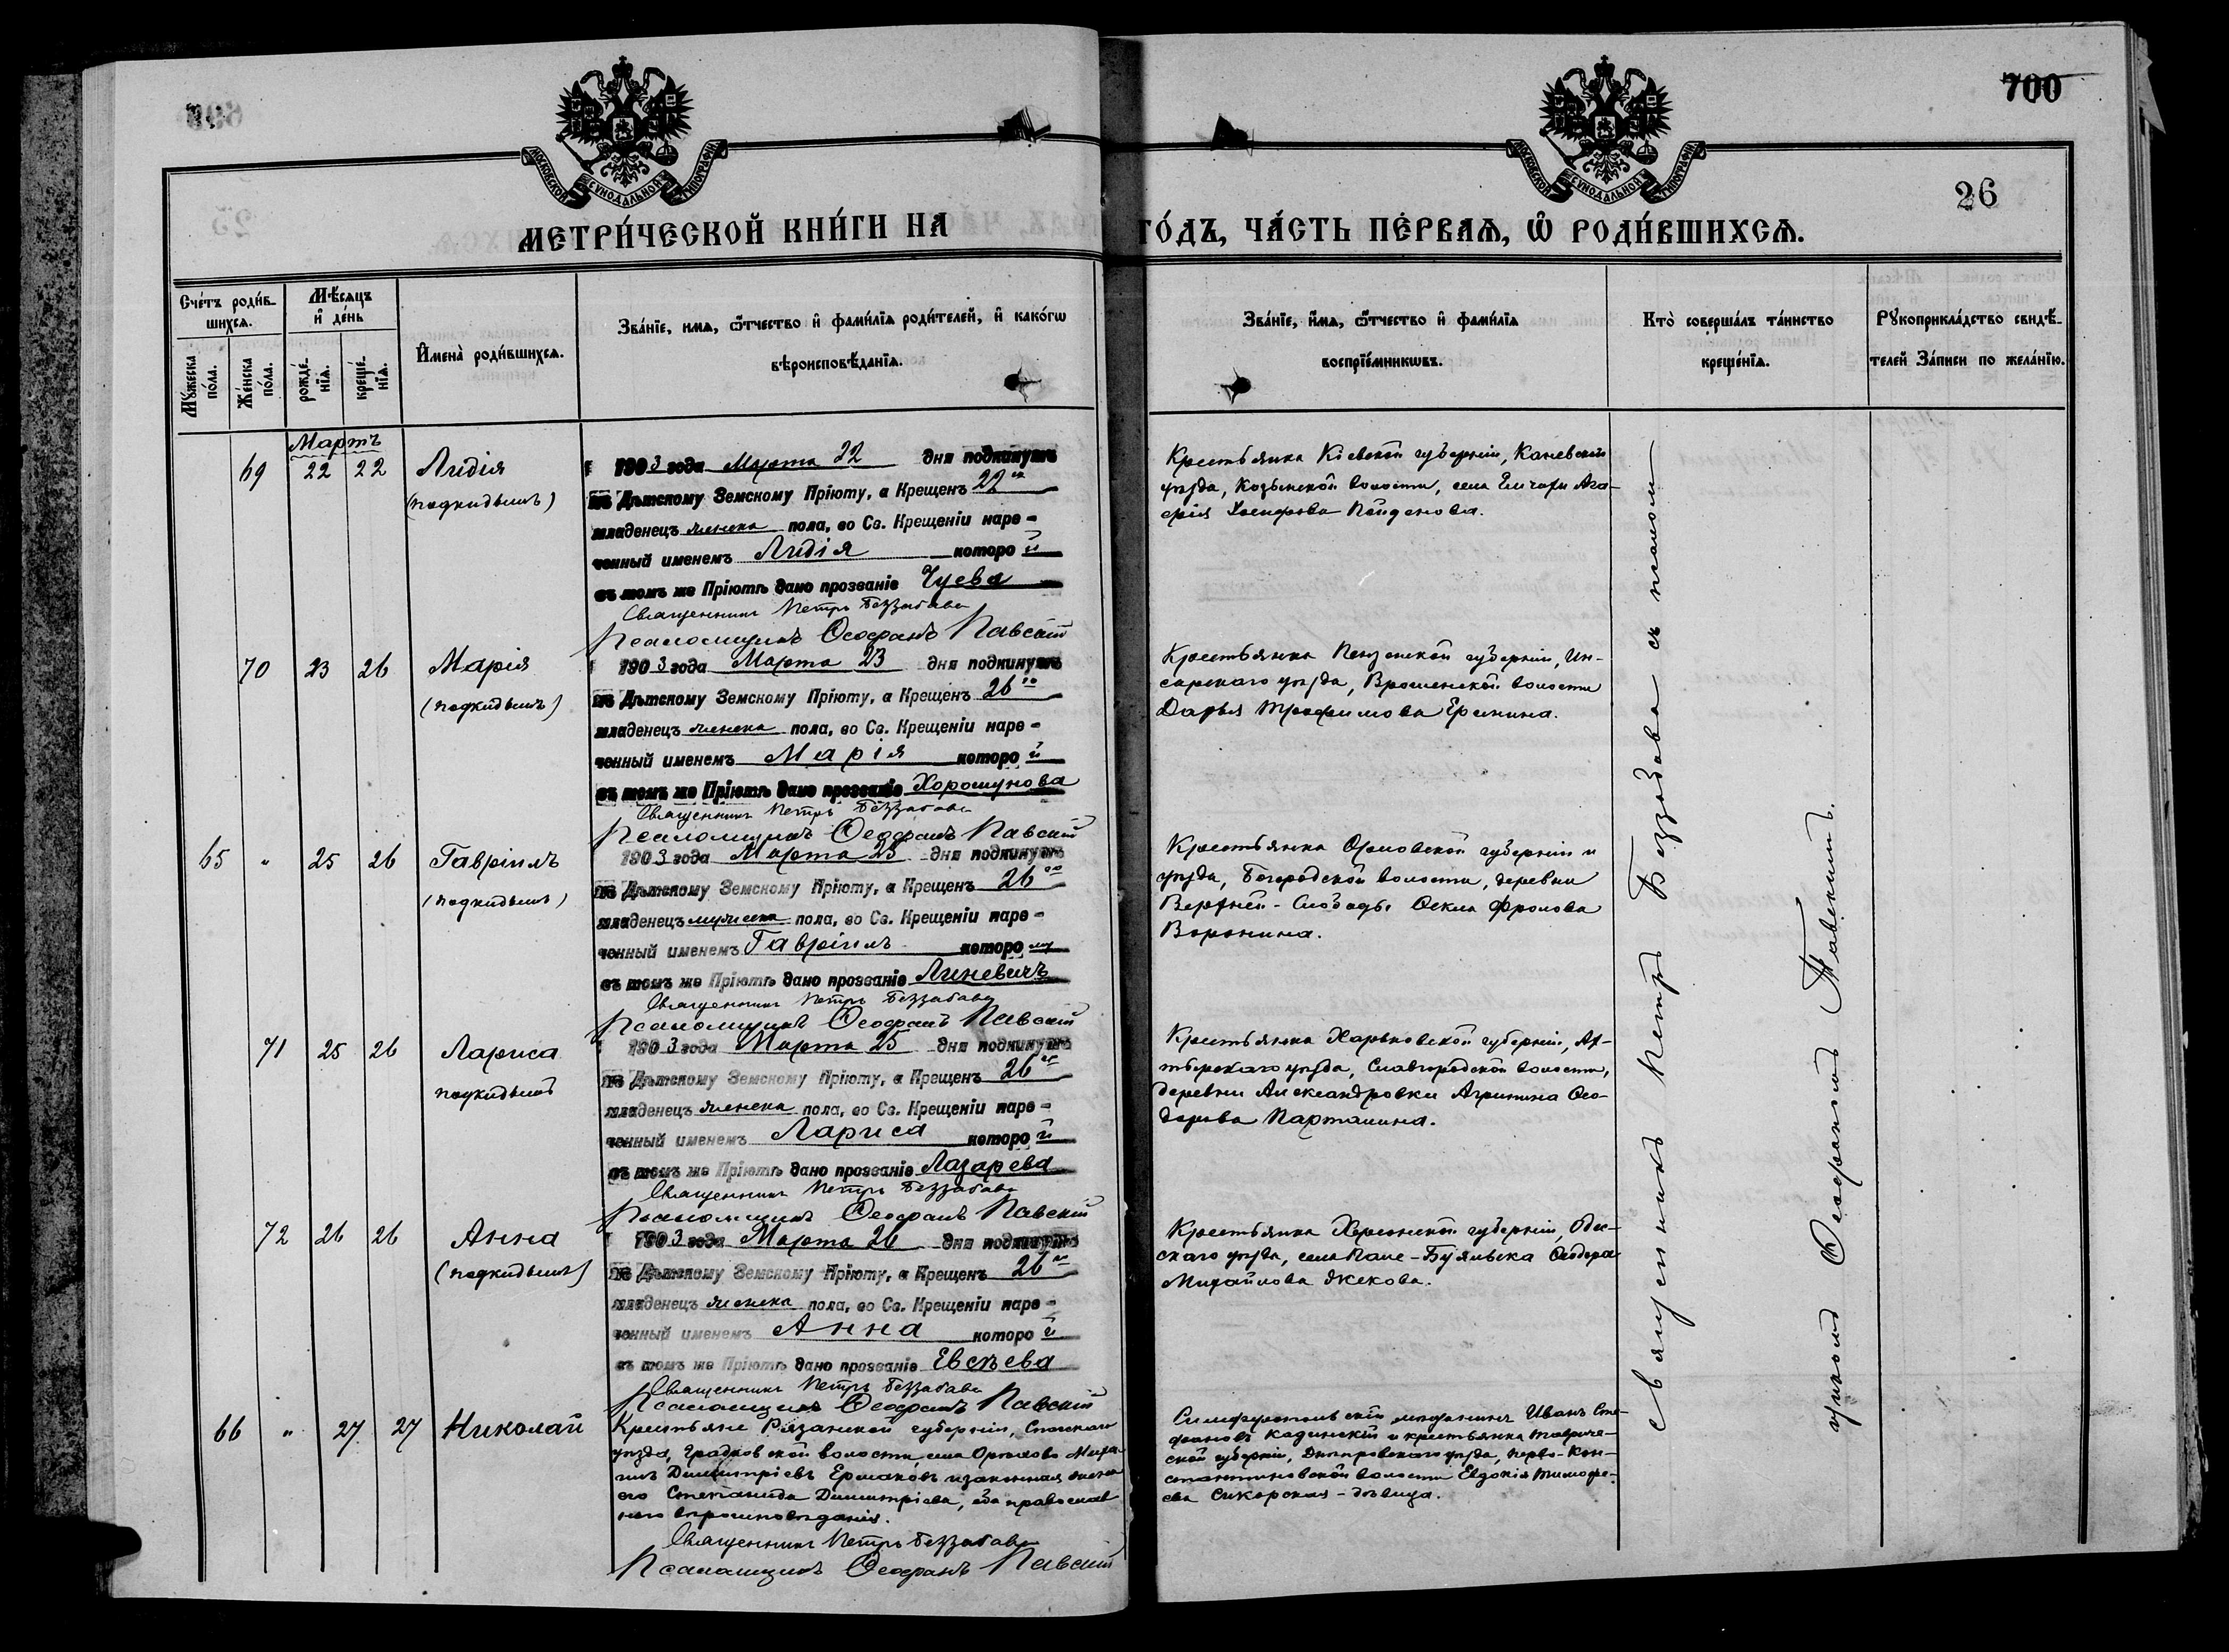 700
26
МОСКОВСКОЙ СѴНОДАЛЬНОЙ ТИПОГРАФІИ
МОСКОВСКОЙ СѴНОДАЛЬНОЙ ТИПОГРАФІИ
МЕТРИ́ЧЕСКОЙ КНИ́ГИ НА
ГО́ДЪ, ЧА́СТЬ ПЕ́РВАЯ, Ѽ РОДИ́ВШИХСЯ.
Сче́тъ роди́в-
шихся.
Мѣ́сяцъ
и҆ де́нь
Мꙋ́жеска
по́ла.
Же́нска
по́ла.
рожде́-
нїя.
креще́-
нїя.
И҆мена̀ роди́вшихся.
Зва́нїе, имя, ѻ҆́тчество и҆ фами́лїя роди́телей, и҆ како́гѡ
вѣроисповѣ́данїя.
Зва́нїе, и҆́мя, ѻ҆́тчество и҆ фами́лїя
воспрїе́мникѡвъ.
Кто̀ соверша́лъ та́инство
креще́нїя.
Рꙋкоприкла́дство свидѣ́-
телей За́писи по жела́нїю.
Мартъ
69 22 22 Лидія
(подкидышъ)
1903 года Марта 22 дня подкинутъ
къ Дѣтскому Земскому Пріюту, а Крещенъ 22го
младенецъ женска пола, во Св. Крещеніи наре-
ченный именемъ Лидія которой
въ томъ же Пріютѣ дано прозваніе Чуева
Священникъ Петръ Беззабава
Псаломщикъ Ѳеофанъ Павскій
Крестьянка Кіевской губерніи, Каневскаго
уѣзда, Козынской волости, села Емчихи Ага-
70 23 26 Марія
(подкидышъ)
1903 года Марта 23 дня подкинутъ
къ Дѣтскому Земскому Пріюту, а Крещенъ 26го
младенецъ женска пола, во Св. Крещеніи наре-
ченный именемъ Марія которой
въ томъ же Пріютѣ дано прозваніе Хорошунова
Священникъ Петръ Беззабава
Псаломщикъ Ѳеофанъ Павскій
Крестьянка Пензенской губерніи, Ин-
сарскаго уѣзда, волости
Дарья Трофимова Еринина.
65 " 25 26 Гавріилъ
(подкидышъ)
1903 года Марта 25 дня подкинутъ
къ Дѣтскому Земскому Пріюту, а Крещенъ 26го
младенецъ мужеска пола, во Св. Крещеніи наре-
ченный именемъ Гавріилъ которому
въ томъ же Пріютѣ дано прозваніе Линевичъ
Священникъ Петръ Беззабава
Псаломщикъ Ѳеофанъ Павскій
Крестьянка Орловской губерніи и
уѣзда, Богородской волости, деревни
Верхней-Слободы Ѳекла Фролова
Воронина.
71 25 26 Лариса
подкидышъ
1903 года Марта 25 дня подкинутъ
къ Дѣтскому Земскому Пріюту, а Крещенъ 26го
младенецъ женска пола, во Св. Крещеніи наре-
ченный именемъ Лариса которой
въ томъ же Пріютѣ дано прозваніе Лазарева
Священникъ Петръ Беззабава
Псаломщикъ Ѳеофанъ Павскій
Крестьянка Харьковской губерніи, Ах-
тырскаго уѣзда, Славгородской волости,
деревни Александровки Агрипина Ѳео-
дорова Парталина.
72 26 26 Анна
(подкидышъ)
1903 года Марта 26 дня подкинутъ
къ Дѣтскому Земскому Пріюту, а Крещенъ 26го
младенецъ женска пола, во Св. Крещеніи наре-
ченный именемъ Анна которой
въ томъ же Пріютѣ дано прозваніе Евсѣева
Священникъ Петръ Беззабава
Псаломщикъ Ѳеофанъ Павскій
Крестьянка Херсонской губерніи, Одес-
скаго уѣзда, села Ѳеодора
Михайлова Жекова.
66 " 27 27 Николай
Крестьяне Рязанской губерніи, Спасскаго
уѣзда, Градковской волости, села Орѣхово Миха-
илъ Димитріевъ Ермаковъ и законная жена
его Степанида Димитріева, оба православ
наго вѣроисповѣданія.
Священникъ Петръ Беззабава
Псаломщикъ Ѳеофанъ Павскій
Симферопольскій мѣщанинъ Иванъ Сте-
фановъ Кадинскій и крестьянка Тавриче-
ской губерніи, Днѣпровскаго уѣзда, Перво-Кон-
стантиновской волости Евдокія Тимофе-
ева Сикорская - дѣвица.
Священникъ Петръ Беззабава съ псаломщикомъ Ѳеофаномъ Павскимъ.